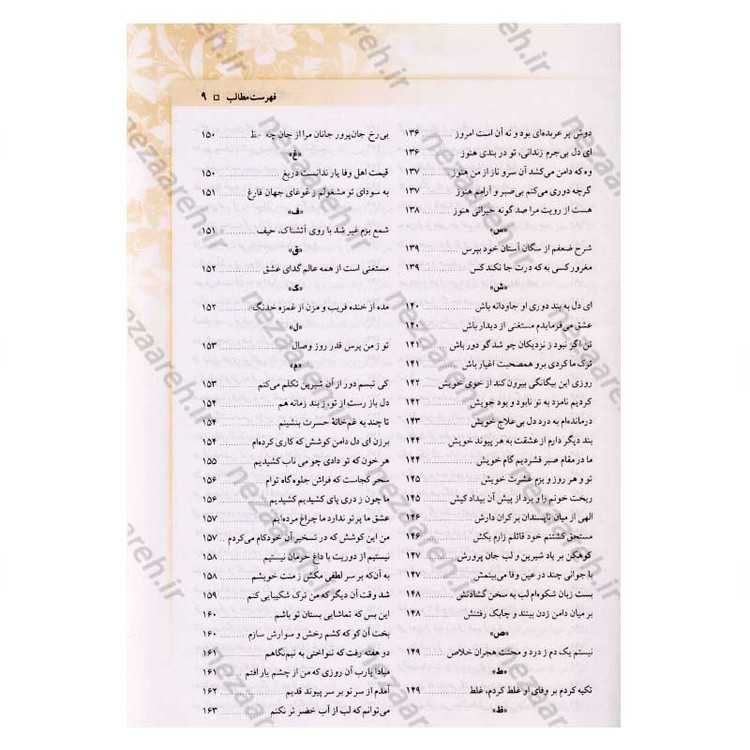 فهرست مطالب □ ۹
دوش پر عربده‌ای بود و نه آن است امروز ........ ۱۳۶
ای دل بی‌جرم زندانی، تو در بندی هنوز ........ ۱۳۶
وه که دامن می‌کشد آن سرو ناز از من هنوز ........ ۱۳۷
گرچه دوری می‌کنم بی‌صبر و آرامم هنوز ........ ۱۳۷
هست از رویت مرا صد گونه حیرانی هنوز ........ ۱۳۸
«س»
شرح ضعفم از سگان آستان خود بپرس ........ ۱۳۹
مغرور کسی به که درت جا نکند کس ........ ۱۳۹
«ش»
ای دل به بند دوری او جاودانه باش ........ ۱۴۰
عشق می‌فرمایدم مستغنی از دیدار باش ........ ۱۴۰
تن اگر نبود ز نزدیکان چو شد گو دور باش ........ ۱۴۱
ترک ما کردی برو همصحبت اغیار باش ........ ۱۴۱
روزی این بیگانگی بیرون کند از خوی خویش ........ ۱۴۲
کردیم نامزد به تو نابود و بود خویش ........ ۱۴۲
درمانده‌ام به درد دل بی‌علاج خویش ........ ۱۴۳
بند دیگر دارم از عشقت به هر پیوند خویش ........ ۱۴۴
ما در مقام صبر فشردیم گام خویش ........ ۱۴۴
تو و هر روز و بزم عشرت خویش ........ ۱۴۵
ریخت خونم را و برد از پیش آن بیداد کیش ........ ۱۴۵
الهی از میان ناپسندان بر کران دارش ........ ۱۴۶
مستحق کشتنم خود قائلم زارم بکش ........ ۱۴۶
کوهکن بر یاد شیرین و لب جان پرورش ........ ۱۴۷
با جوانی چند در عین وفا می‌بینمش ........ ۱۴۷
بست زبان شکوه‌ام لب به سخن گشادنش ........ ۱۴۸
بر میان دامن زدن بینند و چابک رفتنش ........ ۱۴۸
«ص»
نیستم یک دم ز درد و محنت هجران خلاص ........ ۱۴۹
«ط»
تکیه کردم بر وفای او غلط کردم، غلط ........ ۱۴۹
«ظ»
بی رخ جان‌پرور جانان مرا از جان چه حظ ........ ۱۵۰
«غ»
قیمت اهل وفا یار ندانست دریغ ........ ۱۵۰
به سودای تو مشغولم ز غوغای جهان فارغ ........ ۱۵۱
«ف»
شمع بزم غیر شد با روی آتشناک، حیف ........ ۱۵۱
«ق»
مستغنی است از همه عالم گدای عشق ........ ۱۵۲
«گ»
مده از خنده فریب و مزن از غمزه خدنگ ........ ۱۵۲
«ل»
تو ز من پرس قدر روز وصال ........ ۱۵۳
«م»
کی تبسم دور از آن شیرین تکلم می‌کنم ........ ۱۵۳
دل باز رست از تو، ز بند زمانه هم ........ ۱۵۴
تا چند به غم‌خانهٔ حسرت بنشینم ........ ۱۵۴
برزن ای دل دامن کوشش که کاری کرده‌ام ........ ۱۵۴
هر خون که تو دادی چو می ناب کشیدیم ........ ۱۵۵
سحر کجاست که فراش جلوه گاه توام ........ ۱۵۶
ما چون ز دری پای کشیدیم کشیدیم ........ ۱۵۶
عشق ما پرتو ندارد ما چراغ مرده‌ایم ........ ۱۵۷
من این کوشش که در تسخیر آن خودکام می‌کردم ........ ۱۵۷
نیستیم از دوریت با داغ حرمان نیستیم ........ ۱۵۸
به آن‌که بر سر لطفی مکش ز منت خویشم ........ ۱۵۸
شد وقت آن دیگر که من ترک شکیبایی کنم ........ ۱۵۹
این بس که تماشایی بستان تو باشم ........ ۱۶۰
بخت آن کو که کشم رخش و سوارش سازم ........ ۱۶۰
دو هفته رفت که ننواختی به نیم‌نگاهم ........ ۱۶۱
مبادا یارب آن روزی که من از چشم یار افتم ........ ۱۶۱
آمدم از سر نو بر سر پیوند قدیم ........ ۱۶۲
می‌توانم که لب از آب خضر تر نکنم ........ ۱۶۳
nezaareh.ir